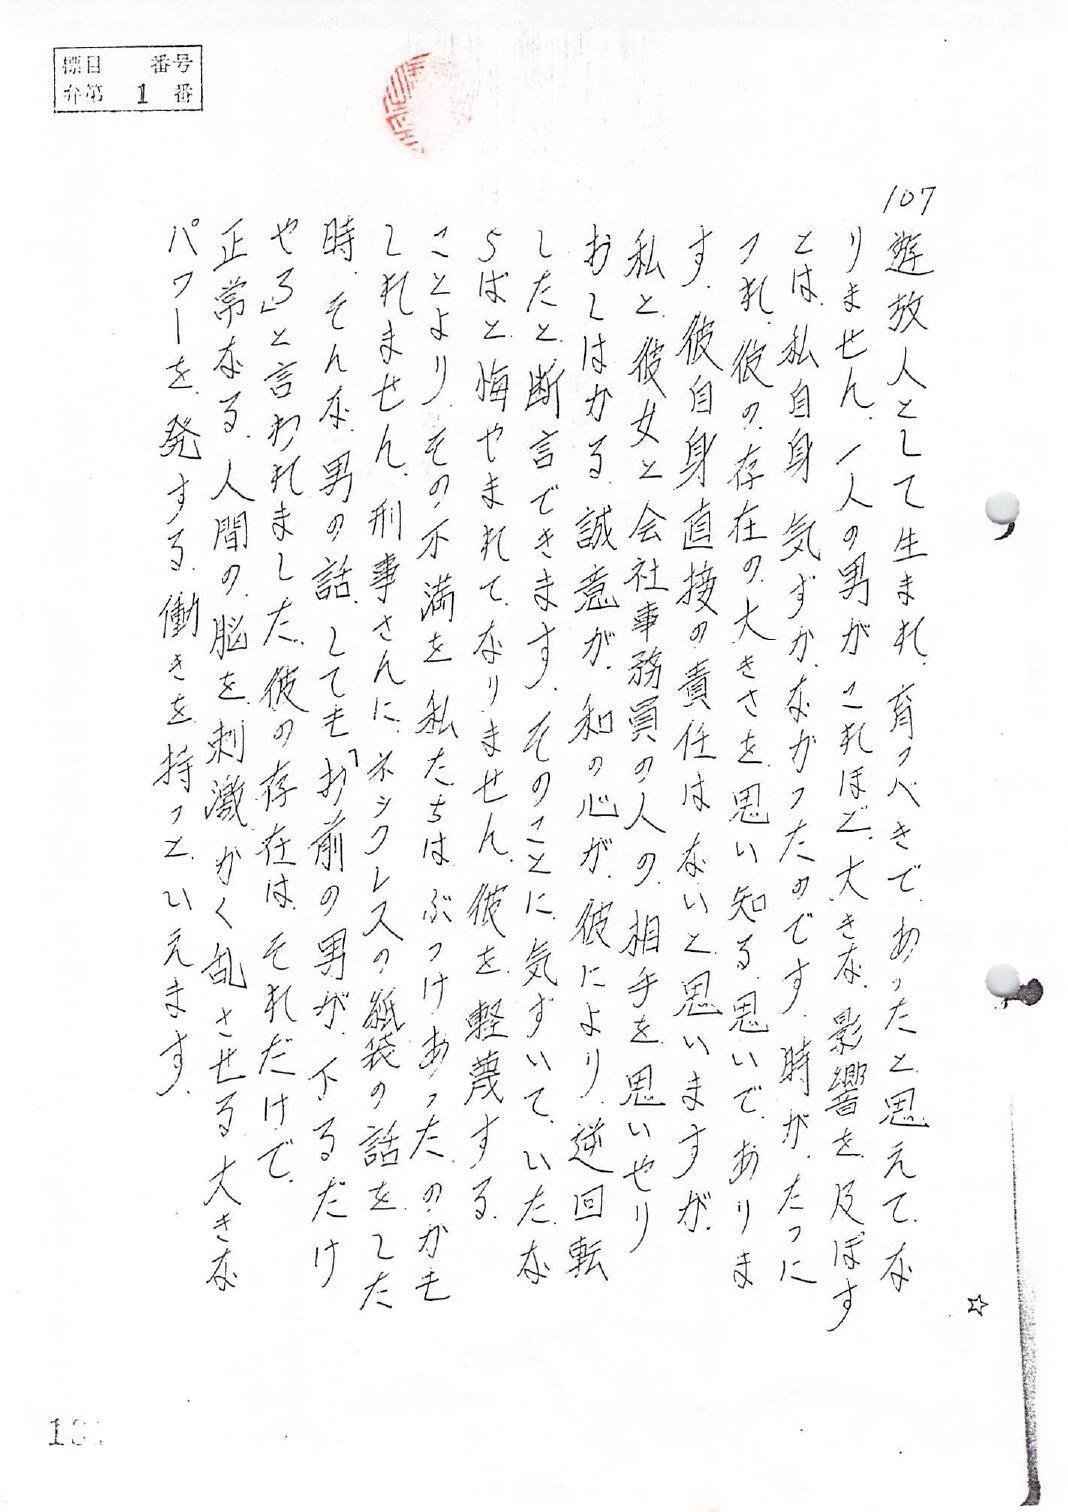 標目 番号
弁第 1 番
107
遊放人として生まれ、育つべきで、あったと思えて、な
りません、一人の男が、これほど、大きな、影響を、及ぼす
とは、私自身、気ずか、なかったのです、時が、たつに
つれ、彼の、存在の、大きさを、思い知る、思いで、ありま
す、彼自身、直接の責任は、ないと、思いますが、
私と、彼女と、会社事務員の人の、相手を、思いやり
おしはかる、誠意が、和の心が、彼により、逆回転
したと、断言できます、そのことに、気ずいて、いた、な
らばと、悔やまれて、なりません、彼を、軽蔑する
ことより、その不満を、私たちは、ぶつけあった、のかも
しれません、刑事さんに、ネックレスの紙袋の話を、した
時、そんな、男の話、しても「お前の男が、下るだけ
やろ」と言われました、彼の存在は、それだけで、
正常なる、人間の、脳を、刺激、かく乱、させる、大きな
パワーを、発する、働きを、持つと、いえます、
☆